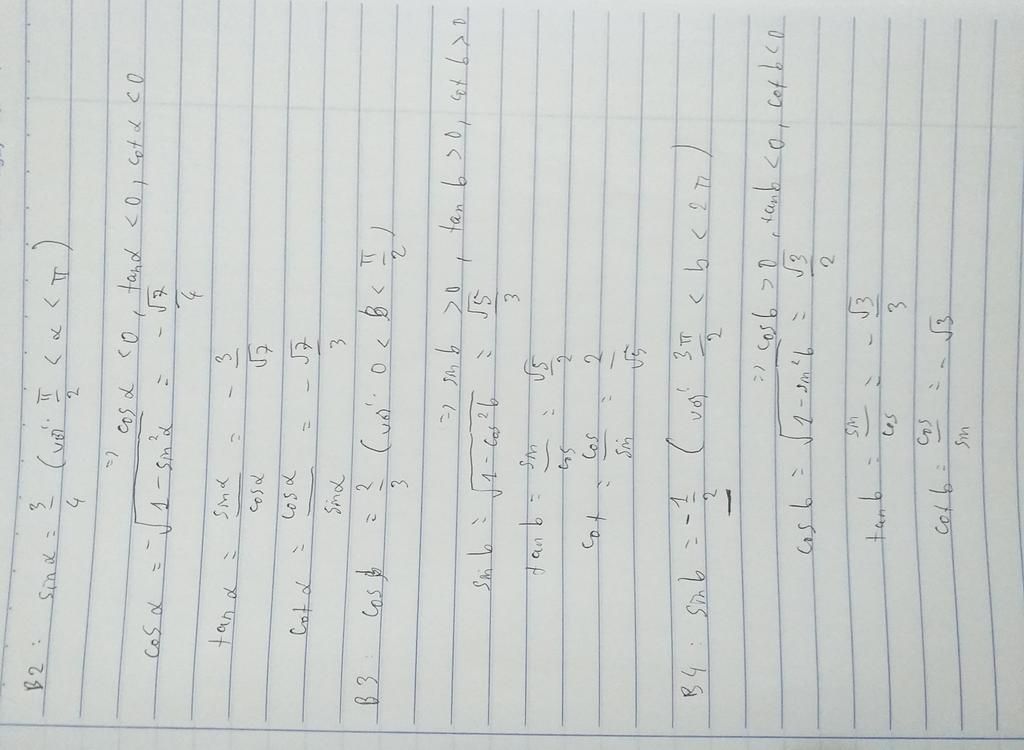 B2: sinα = 3/4 (với: π/2 < α < π)
=> cosα < 0, tanα < 0, cotα < 0
cosα = -√(1 - sin²α) = -√7/4
tanα = sinα/cosα = -3/√7
cotα = cosα/sinα = -√7/3
B3: cos b = 2/3 (với: 0 < B < π/2)
=> sin b > 0, tan b > 0, cot b > 0
sin b = √(1 - cos²b) = √5/3
tan b = sin/cos = √5/2
cot = cos/sin = 2/√5
B4: sin b = -1/2 (với: 3π/2 < b < 2π)
=> cos b > 0, tan b < 0, cot b < 0
cos b = √(1 - sin²b) = √3/2
tan b = sin/cos = -√3/3
cot b = cos/sin = -√3